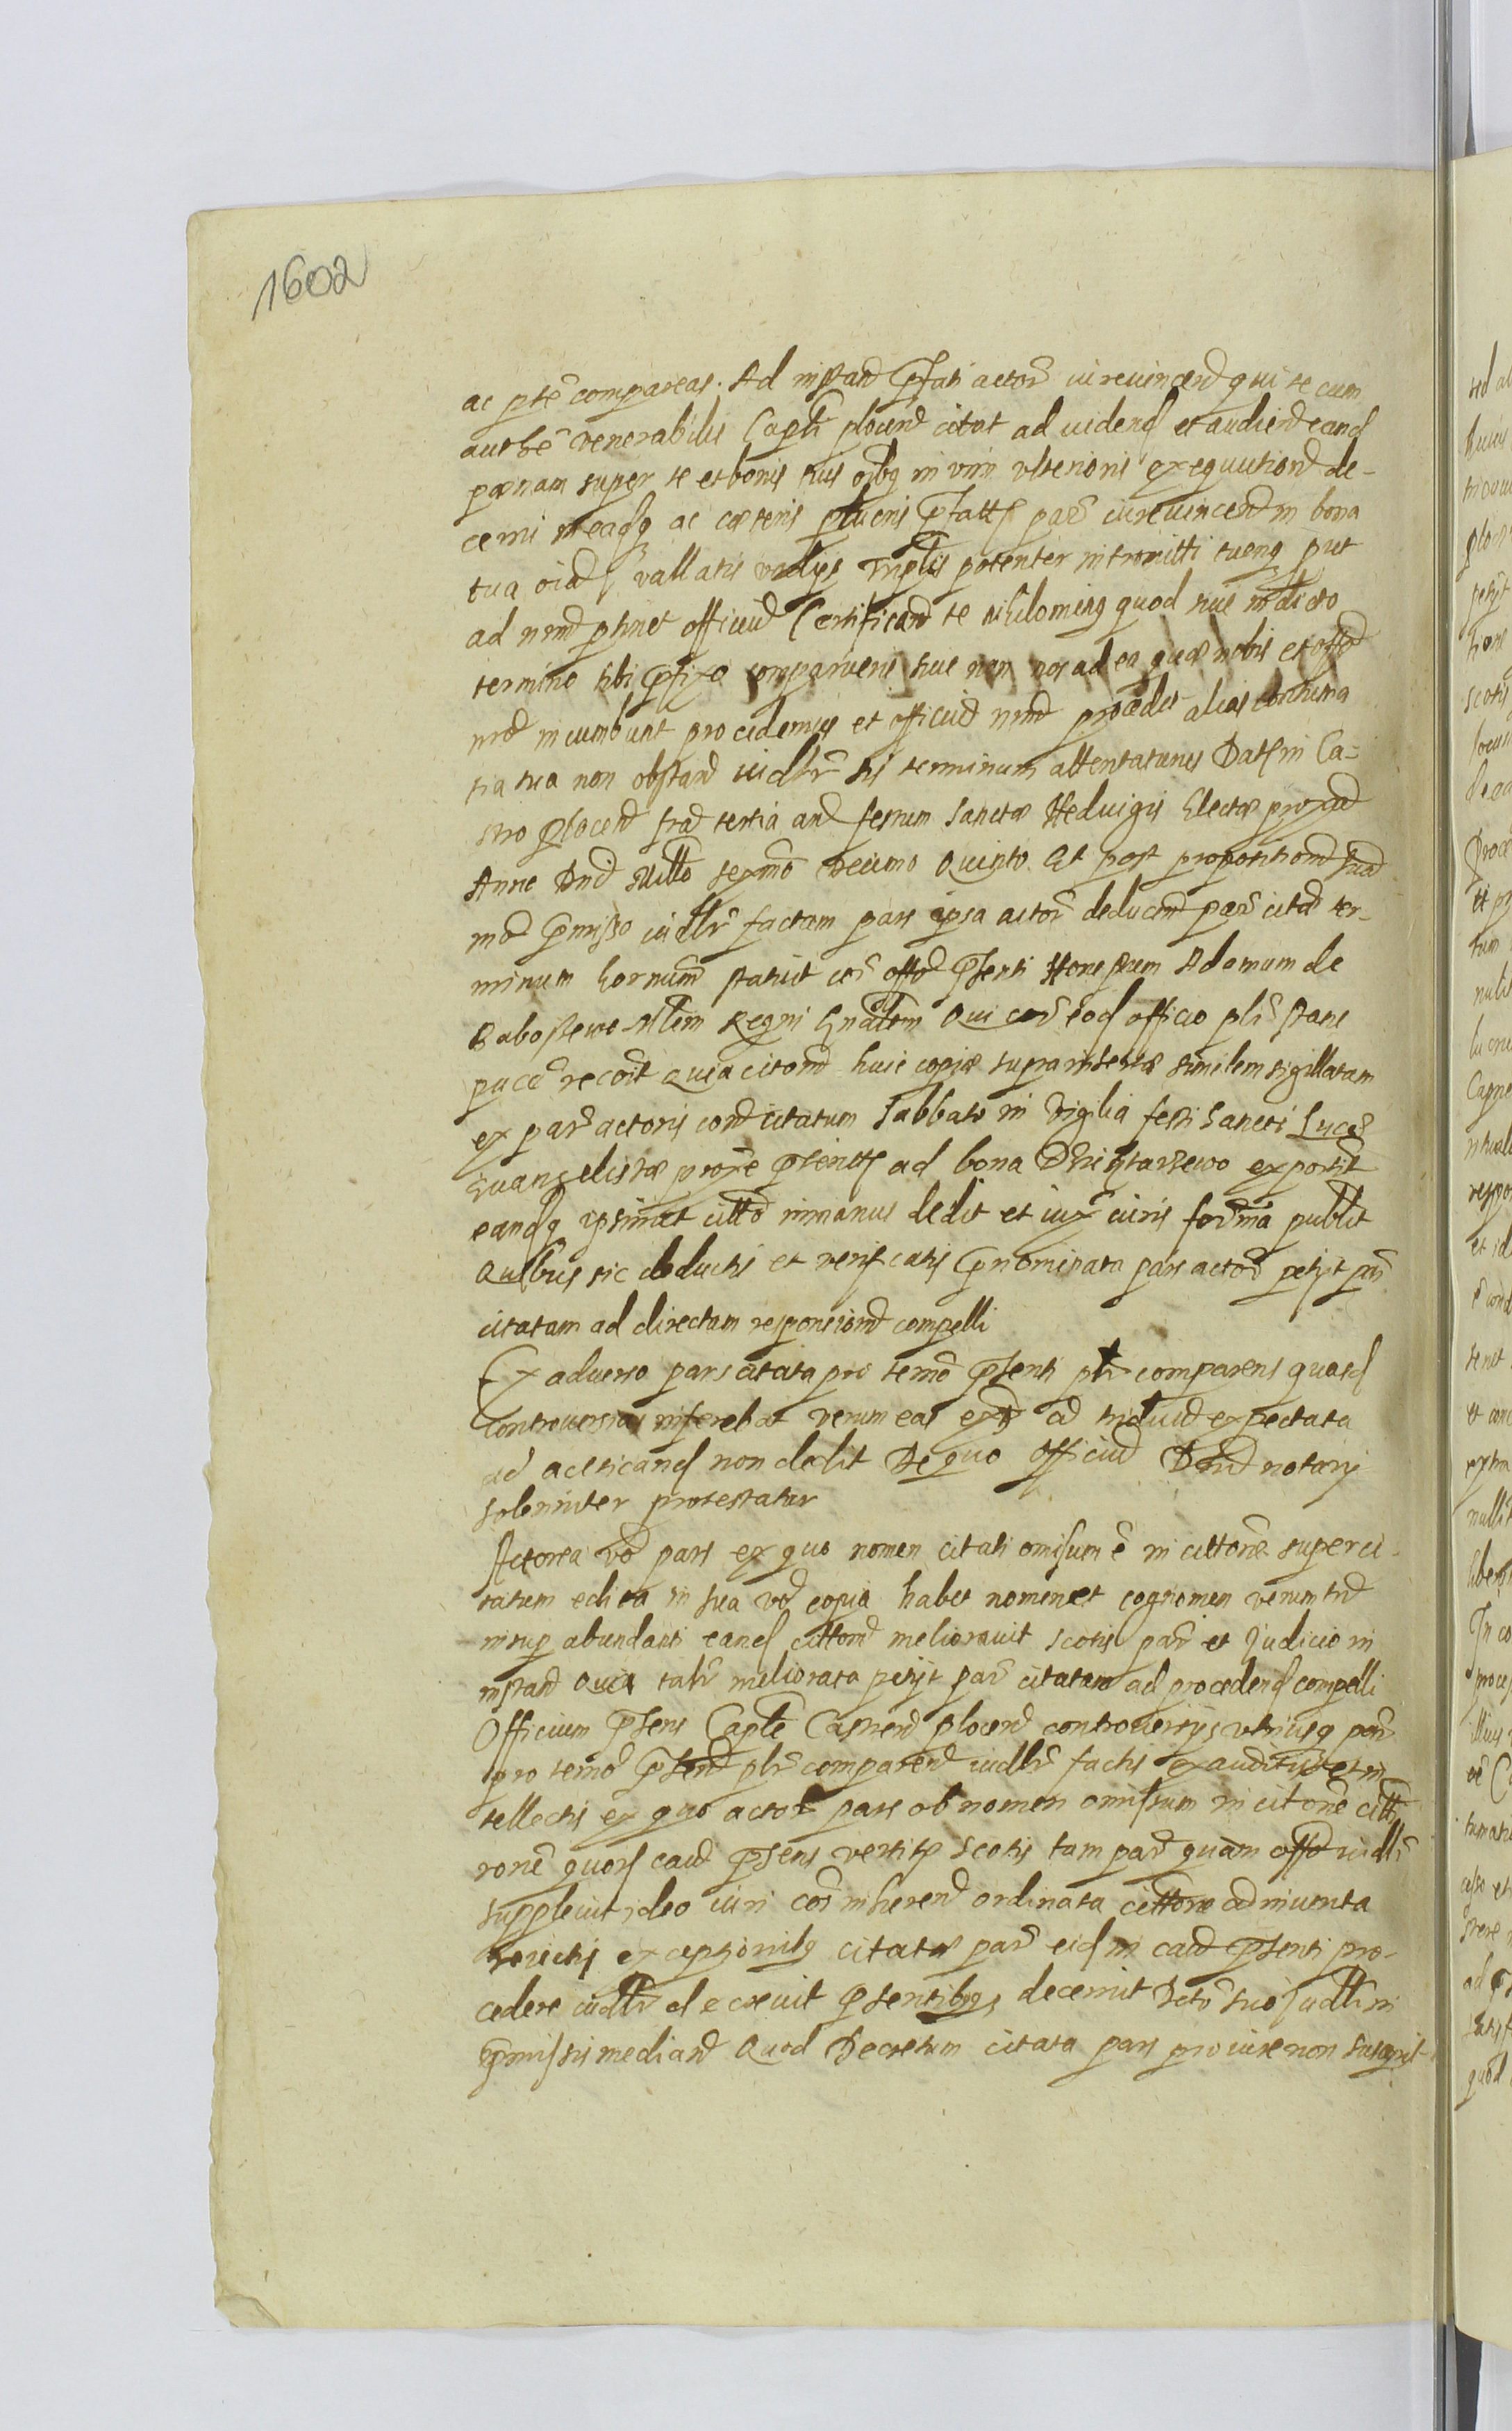 1602
ac ptē compareas. Ad instand pfati actor iurevincend qui te cum
authē venerabilis Caplī plocend citat ad videnđ et audiend eanđ
pœnam super te et bonis tuis oībq in vim ulterionis exequutiond de-
cerni ac cæteris pfattȝ par iurevincend in bona
tua vallatis vadijs Triplis potenter intromitti put
ad nrmd ptinet officiud Certificand te nihilominq quod siue in dicto
termino tibi pfixo comparueris siue non nos ad ea quæ nobis et offo
nrod incumbunt procedemus et officiud nrmd procedet alias contuma
tia tua non obstand iudlr his terminum attentaturus Datȝ in Ca-
stro Plocend frad tertia and festum Sanctæ Heduigis Electæ proxad
Anno Dnid Mllō sexmō Decimo Quinto Et post propositiond suad
mod pmisso iudlr factam pars ipsa actor deducend par citad ter-
minum hornumd statuit cor offo pſenti Honestum Adamum de
Babostewo Mlem Regni Gnalem Qui cor eod officio plr stans
pacē recoīt Quia citond huic copiæ suprainsertæ similem sigillatam
ex par actoris cond citatum Sabbato in Vigilia festi Sancti Lucæ
Euangelistæ proxe pteritȝ ad bona exportit
eandq ipsimet citto in manus dedit et iux iuris formā publit
Quibus sic deductis et verificatis pnominata pars actor petijt par
citatam ad directam responsiond compelli
Ex aduerso pars citata pro termō pſenti plr comparens quasđ
Controuersias inferebat verum eas ad triduud expectata
ad acticanđ non dedit De quo officiud Dnid notarij
solenniter protestatur
Actorea vo pars ex quo nomen citati omissum ē in cittone super ci-
tatum edita in sua vo copia habet nomen et cognomen verum tnd
insup abundanti eanđ cittond meliorauit scotis par et Judicio in
instand Quia talr meliorata petijt par citatam ad procedenđ compelli
Officium pſens Caplē Castrend plocend controuersijs utriusq par
pro termō pſend plr comparend iudlr factis exauditis et in-
tellectis ex quo actor pars ob nomen omissum in citone citti
rone quorđ caud pſens vertitȝ scotis tam par quam offo iudlr
suppleuit ideo iuri cōi inherend ordinata cittone adinuenta
reiectis exceptionibq citatæ par eid in caud pſenti pro-
cedere iudlr decreuit pſentibqȝ decernit Dcto suo judlr in
pmissis mediand Quod Decretum citata pars pro iure non suscepit